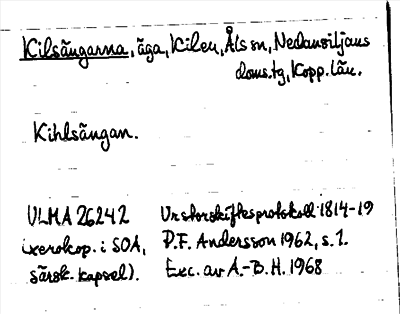 Kilsängarna, äga, Kilen, Åls sn, Nedansiljans
doms.tg, Kopp. län.
Kihlsängan.
ULMA 26242 Ur storskiftesprotokoll 1814-19
(xerokop. i SOA, P.F. Andersson 1962, s. 1.
särsk. kapsel). Exc. av A.-B. H. 1968